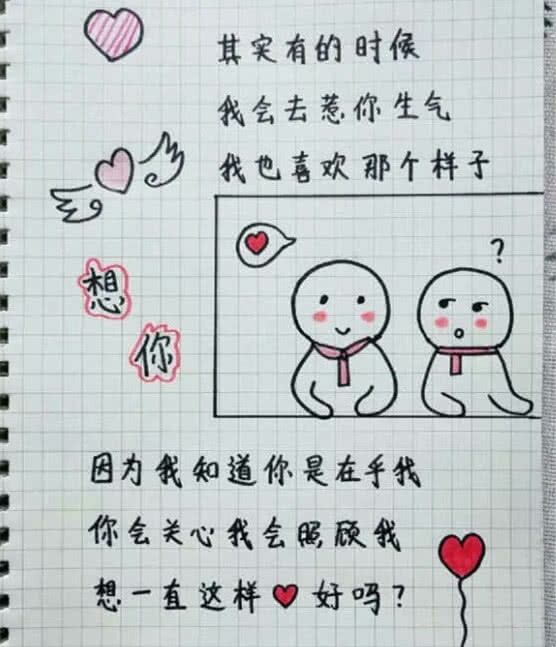 其实有的时候
我会去惹你生气
我也喜欢那个样子
?
想
你
因为我知道你是在乎我
你会关心我会照顾我
想一直这样❤好吗?